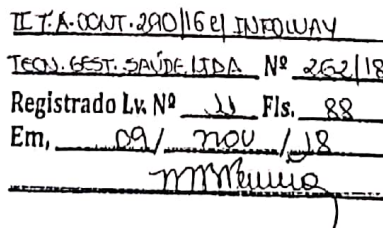 II T.A. CONT. 290/16 e/ INFOWAY
TECN. GEST. SAÚDE LTDA Nº 262/18
Registrado Lv. Nº 11 Fls. 88
Em, 09 / nov / 18